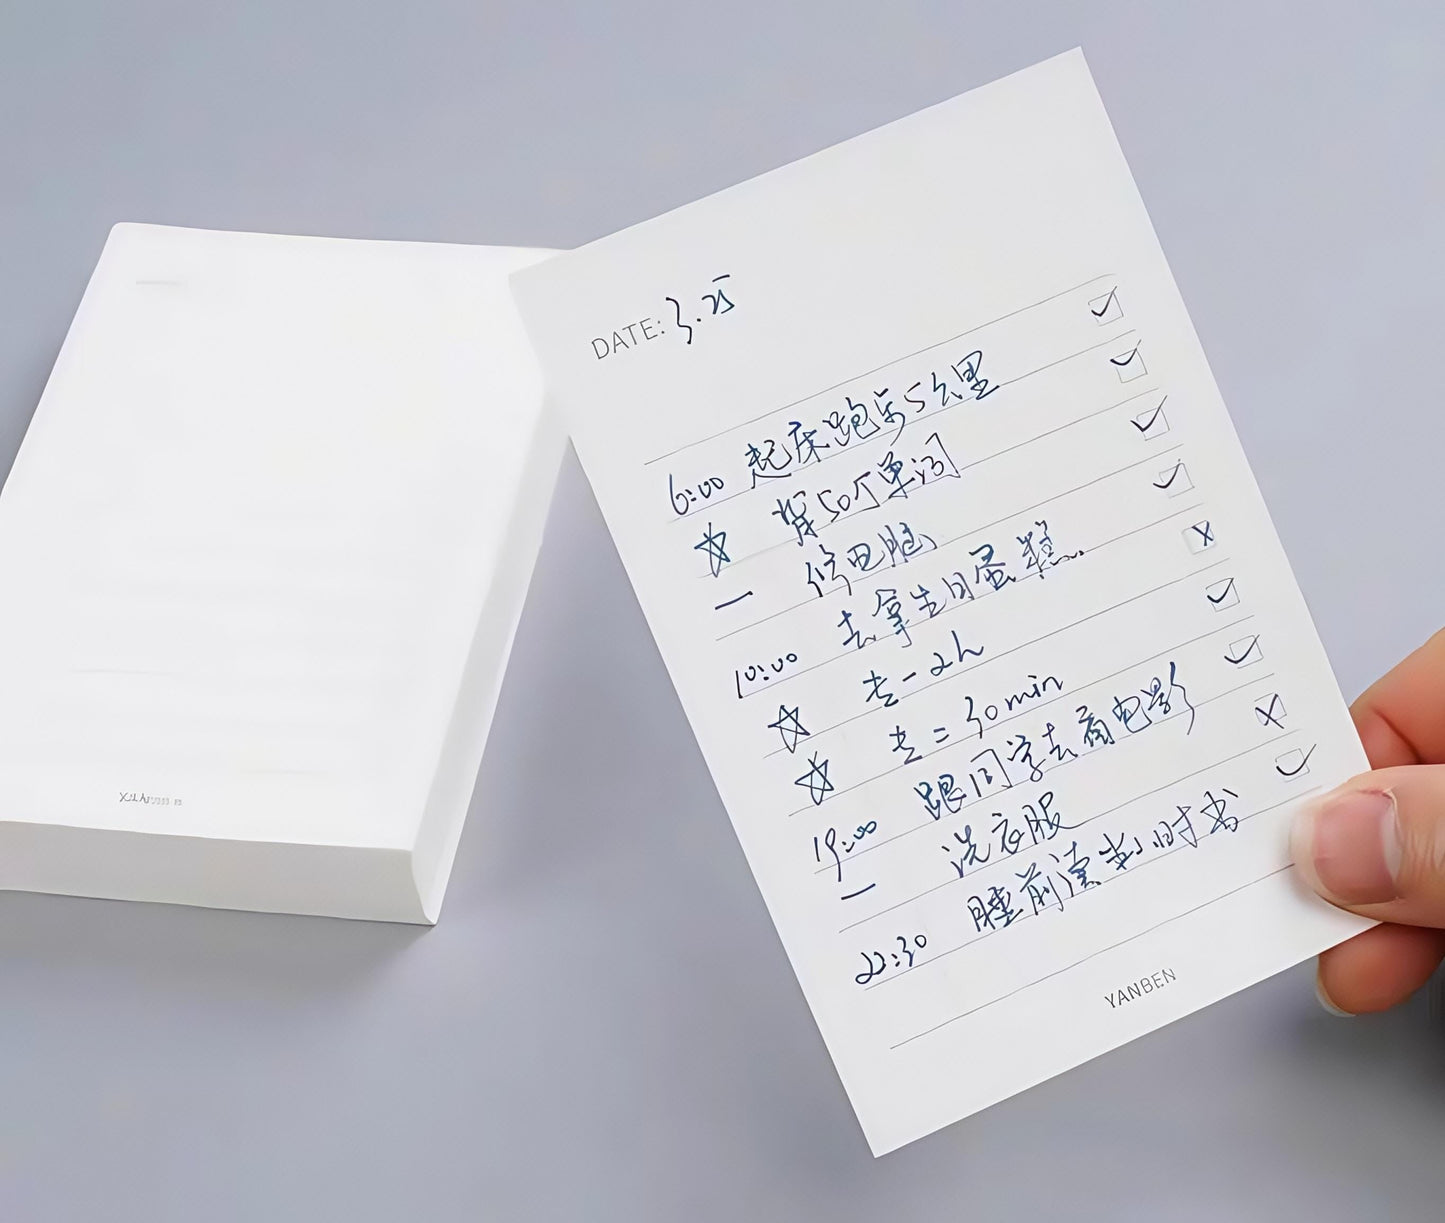 DATE: 3.25
6:00 起床跑步5公里
☆ 背50个单词
一 修电脑
10:00 去拿生日蛋糕
☆ 专一 2h
☆ 专二 30min
19:00 跟同学去看电影
一 洗衣服
22:30 睡前读半小时书
YANBEN